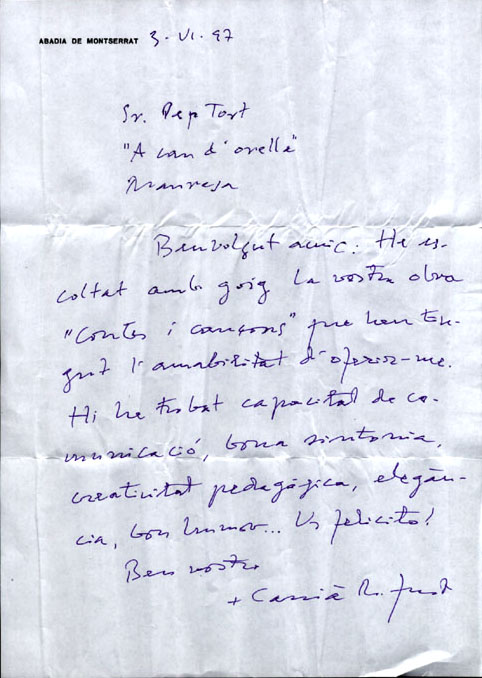 ABADIA DE MONTSERRAT 3-VI-97
Sr. Pep Tort
"A cau d'orella"
Manresa
Benvolgut amic: He es-
coltat amb goig la vostra obra
"Contes i cançons" que heu tin-
gut l'amabilitat d'oferir-me.
Hi he trobat capacitat de co-
municació, bona sintonia,
creativitat pedagògica, elegàn-
cia, bon humor... Us felicito!
Ben vostre
+ Cassià M. Just